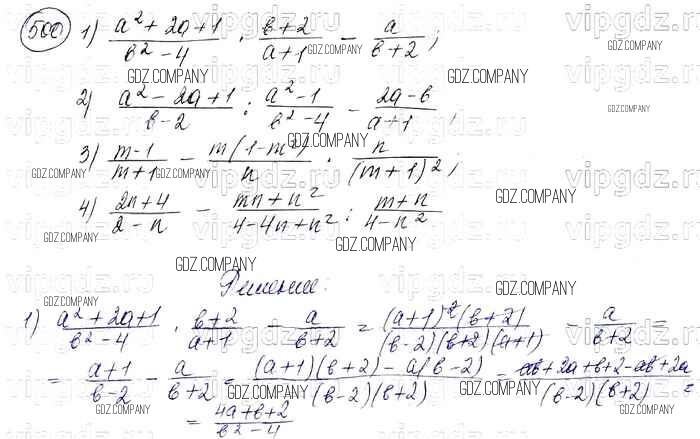 500 1) (a² + 2a + 1)/(b² - 4) · (b + 2)/(a + 1) - a/(b + 2);
2) (a² - 2a + 1)/(b - 2) : (a² - 1)/(b² - 4) - (2a - b)/(a + 1);
3) (m - 1)/(m + 1) - m(1 - m²)/n · n/(m + 1)²;
4) (2n + 4)/(2 - n) - (mn + n²)/(4 - 4n + n²) : (m + n)/(4 - n²)
Решение:
1) (a² + 2a + 1)/(b² - 4) · (b + 2)/(a + 1) - a/(b + 2) = (a + 1)²(b + 2)/(b - 2)(b + 2)(a + 1) - a/(b + 2) =
= (a + 1)/(b - 2) - a/(b + 2) = ((a + 1)(b + 2) - a(b - 2))/(b - 2)(b + 2) = (ab + 2a + b + 2 - ab + 2a)/(b - 2)(b + 2) =
= (4a + b + 2)/(b² - 4)